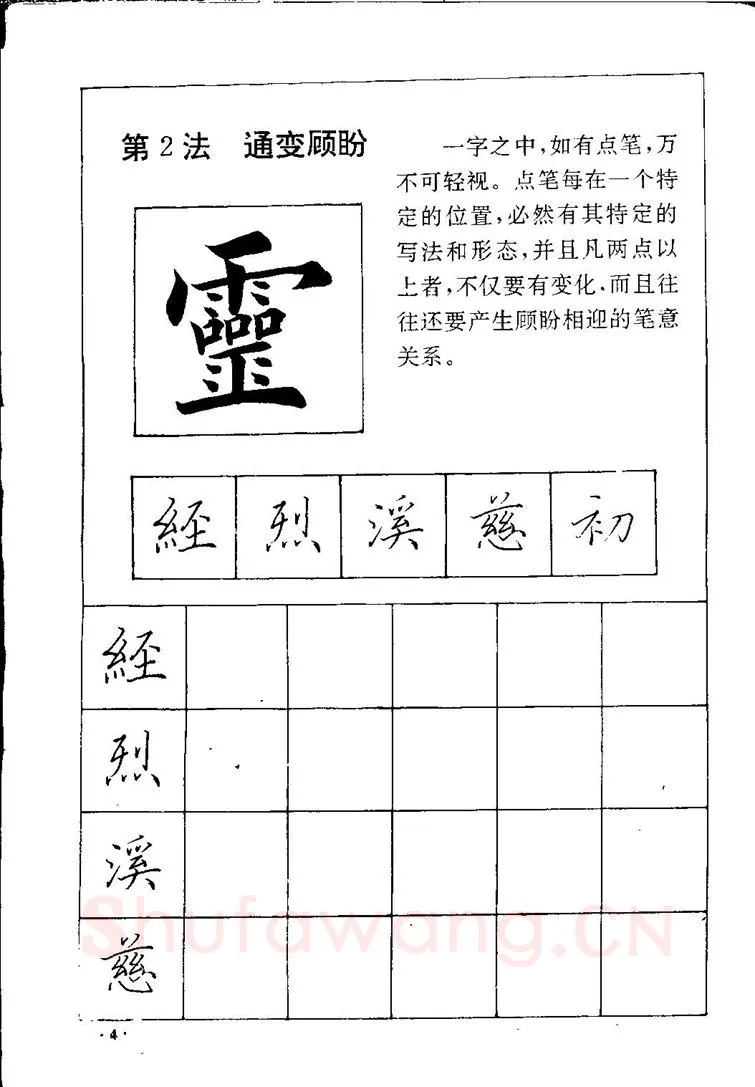 第2法 通变顾盼
一字之中,如有点笔,万
不可轻视。点笔每在一个特
定的位置,必然有其特定的
写法和形态,并且凡两点以
上者,不仅要有变化.而且往
往还要产生顾盼相迎的笔意
关系。
靈
經 烈 溪 慈 初
經
烈
溪
慈
Shufawang.CN
·4·